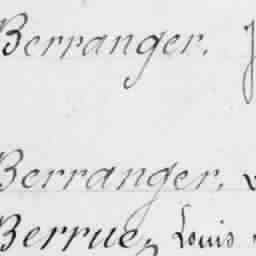 Berranger,
Berranger,
Berrue, Louis